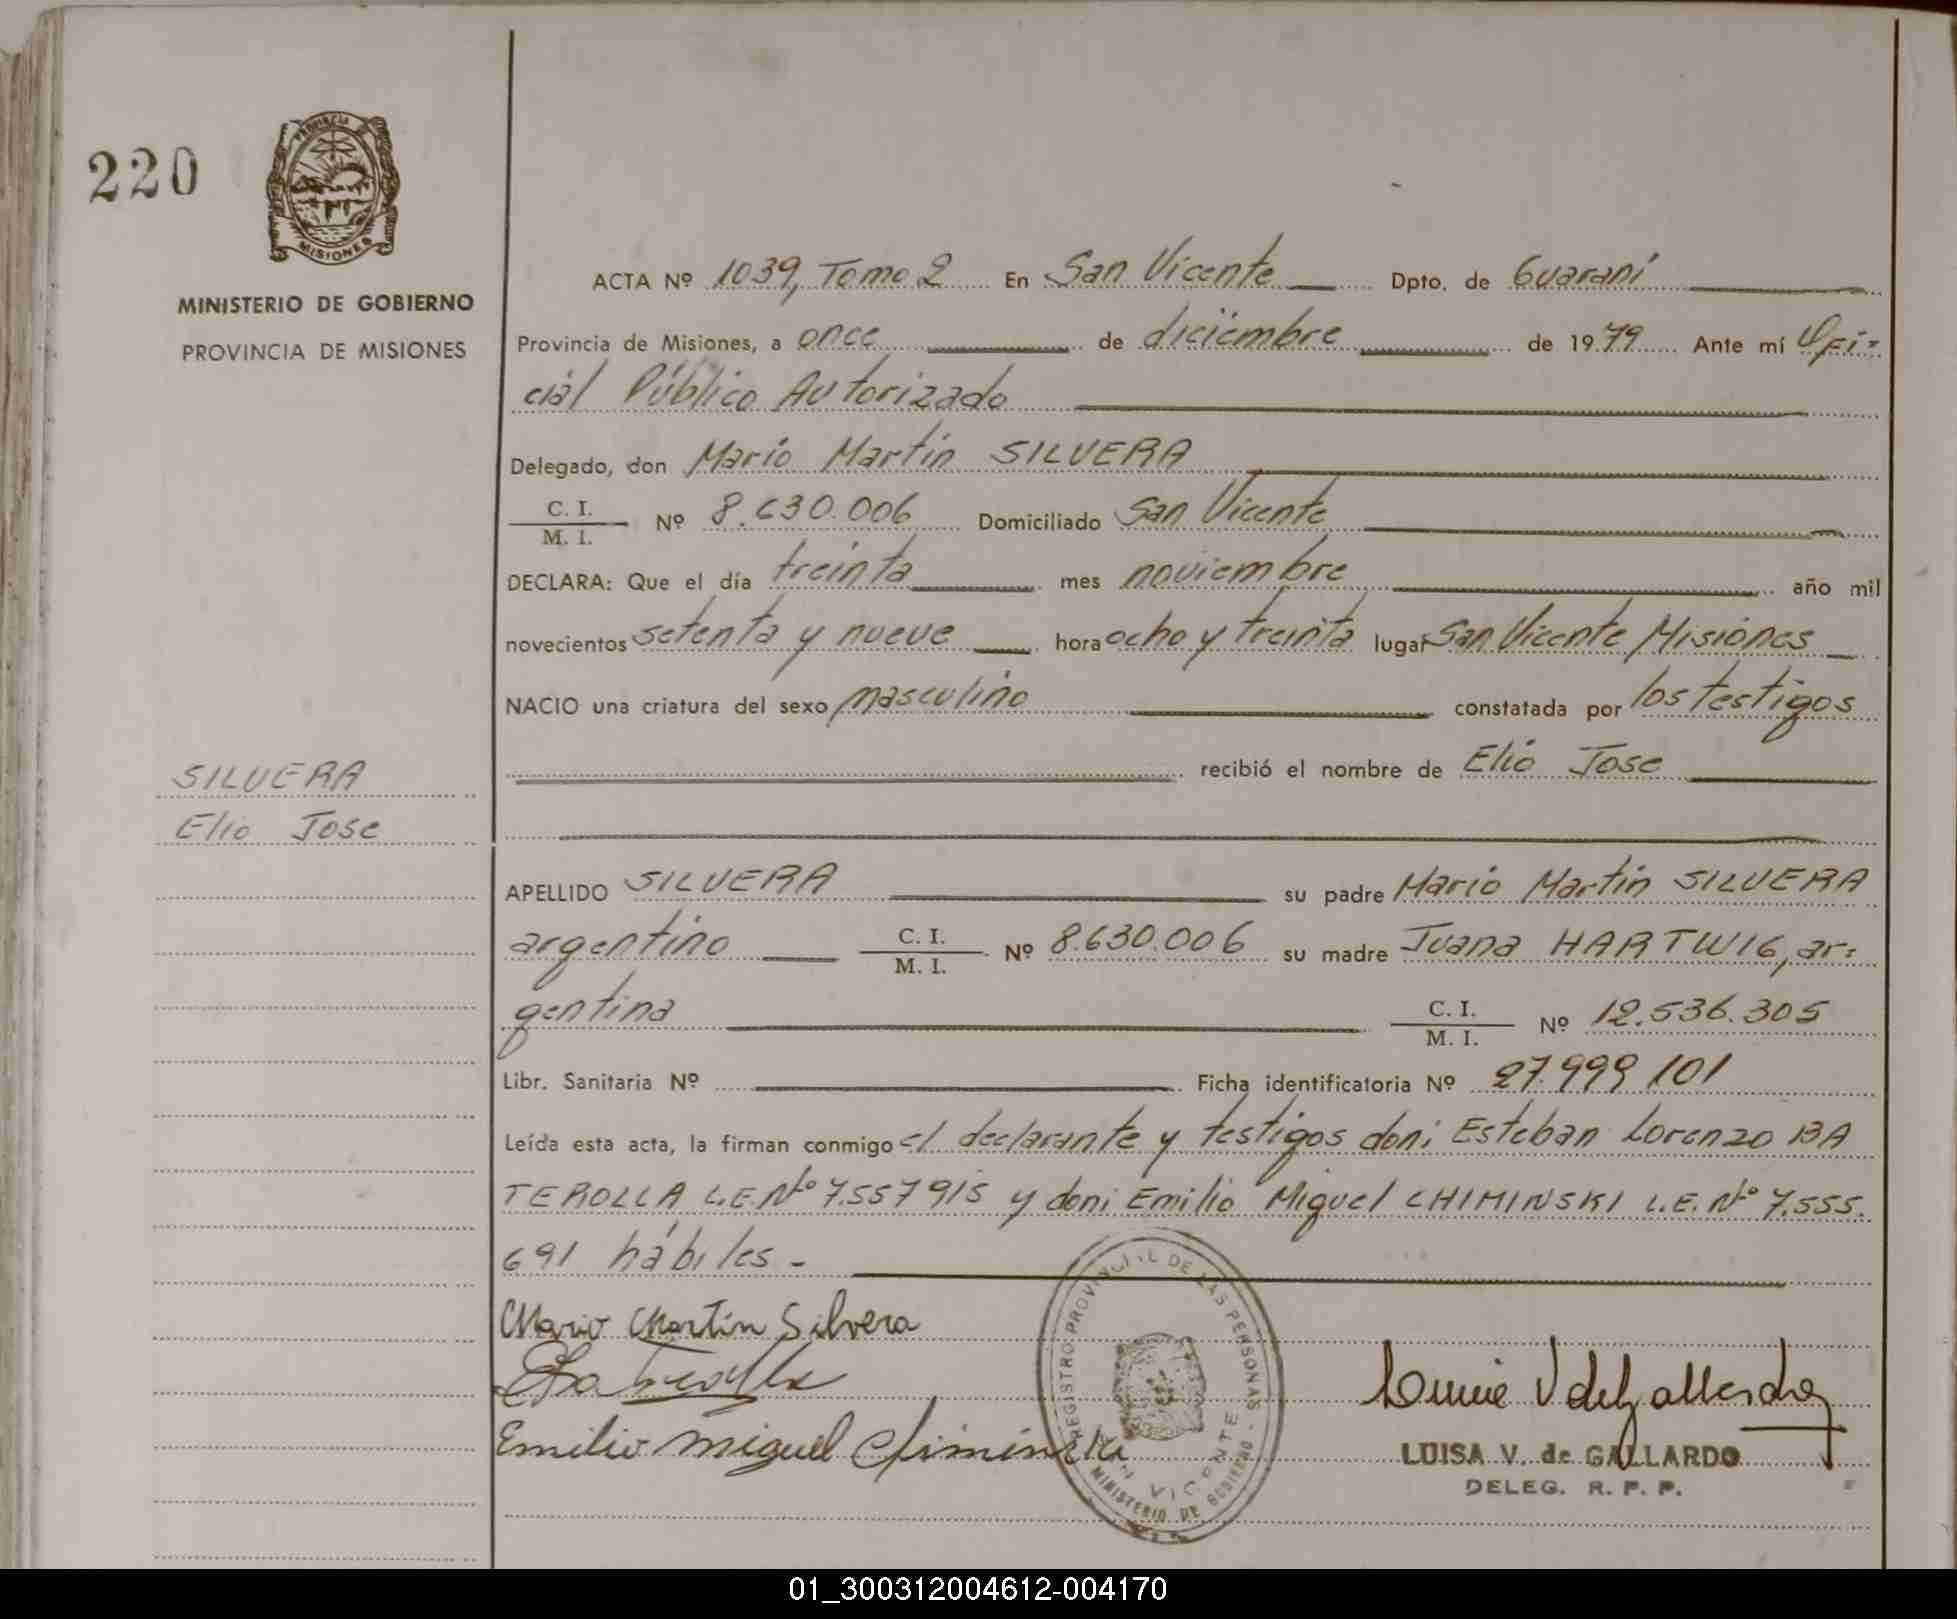 220
PROVINCIA DE
MISIONES
MINISTERIO DE GOBIERNO
PROVINCIA DE MISIONES
SILVERA
Elio Jose
ACTA Nº 1039, Tomo 2 En San Vicente Dpto. de Guaraní
Provincia de Misiones, a once de diciembre de 1979 Ante mí Ofi=
cial Público Autorizado
Delegado, don Mario Martin SILVERA
C. I.
M. I. Nº 8.630.006 Domiciliado San Vicente
DECLARA: Que el día treinta mes noviembre año mil
novecientos setenta y nueve hora ocho y treinta lugar San Vicente Misiones
NACIO una criatura del sexo masculino constatada por los testigos
recibió el nombre de Elio Jose
APELLIDO SILVERA su padre Mario Martin SILVERA
argentino C. I.
M. I. Nº 8.630.006 su madre Juana HARTWIG, ar=
gentina C. I.
M. I. Nº 12.536.305
Libr. Sanitaria Nº Ficha identificatoria Nº 27.999.101
Leída esta acta, la firman conmigo el declarante y testigos don: Esteban Lorenzo BA
TEROLLA L.E. Nº 7.557915 y don: Emilio Miguel CHIMINSKI L.E. Nº 7.555.
691 hábiles -
Mario Martín Silvera
Emilio Miguel Chiminski
REGISTRO PROVINCIAL DE LAS PERSONAS
SAN VICENTE
MINISTERIO DE GOBIERNO
LUISA V. de GALLARDO
DELEG. R. P. P.
01_300312004612-004170